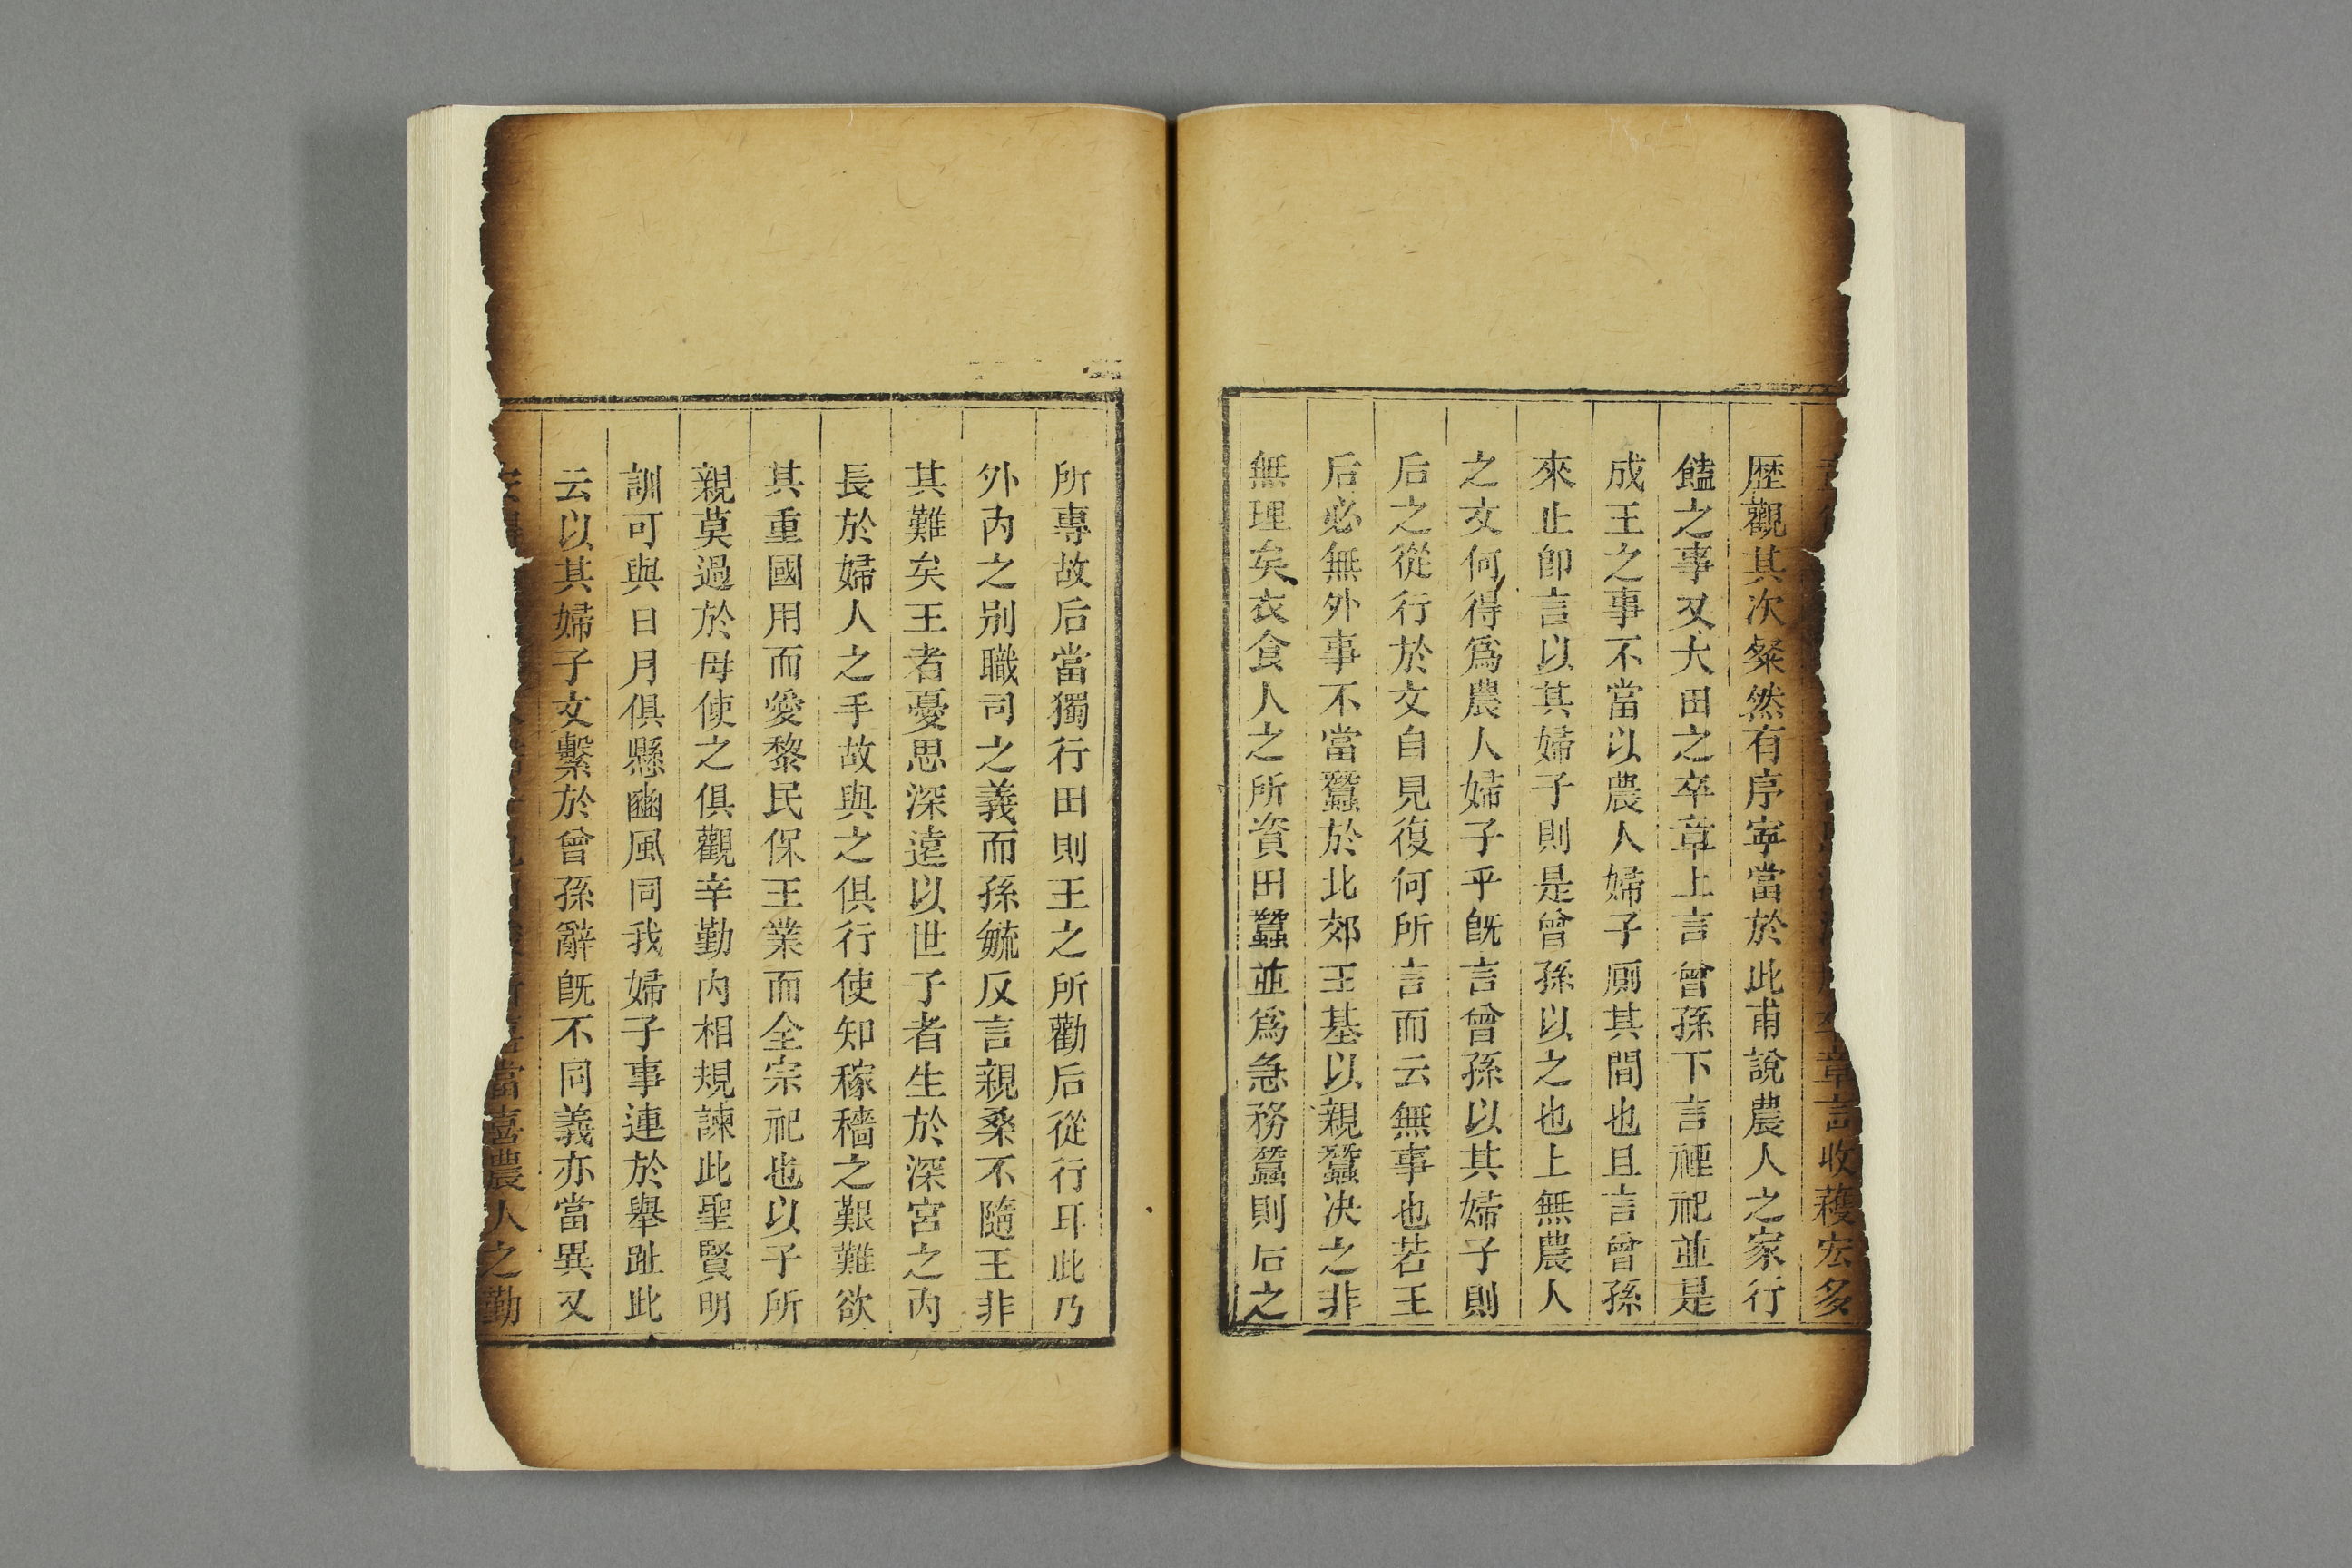 章言收穫宏多
歷觀其次粲然有序寕當於此甫說農人之家行
饁之事又大田之卒章上言曾孫下言禋祀並是
成王之事不當以農人婦子厠其間也且言曾孫
來止卽言以其婦子則是曾孫以之也上無農人
之文何得爲農人婦子乎旣言曾孫以其婦子則
后之從行於文自見復何所言而云無事也若王
后必無外事不當蠶於北郊王基以親蠶决之非
無理矣衣食人之所資田蠶並爲急務蠶則后之
所專故后當獨行田則王之所勸后從行耳此乃
外内之别職司之義而孫毓反言親桑不隨王非
其難矣王者憂思深遠以世子者生於深宮之内
長於婦人之手故與之俱行使知稼穡之艱難欲
其重國用而愛黎民保王業而全宗祀也以子所
親莫過於母使之俱觀辛勤内相規諫此聖賢明
訓可與日月俱懸豳風同我婦子事連於舉趾此
云以其婦子文繫於曾孫辭旣不同義亦當異又
當喜農人之勤